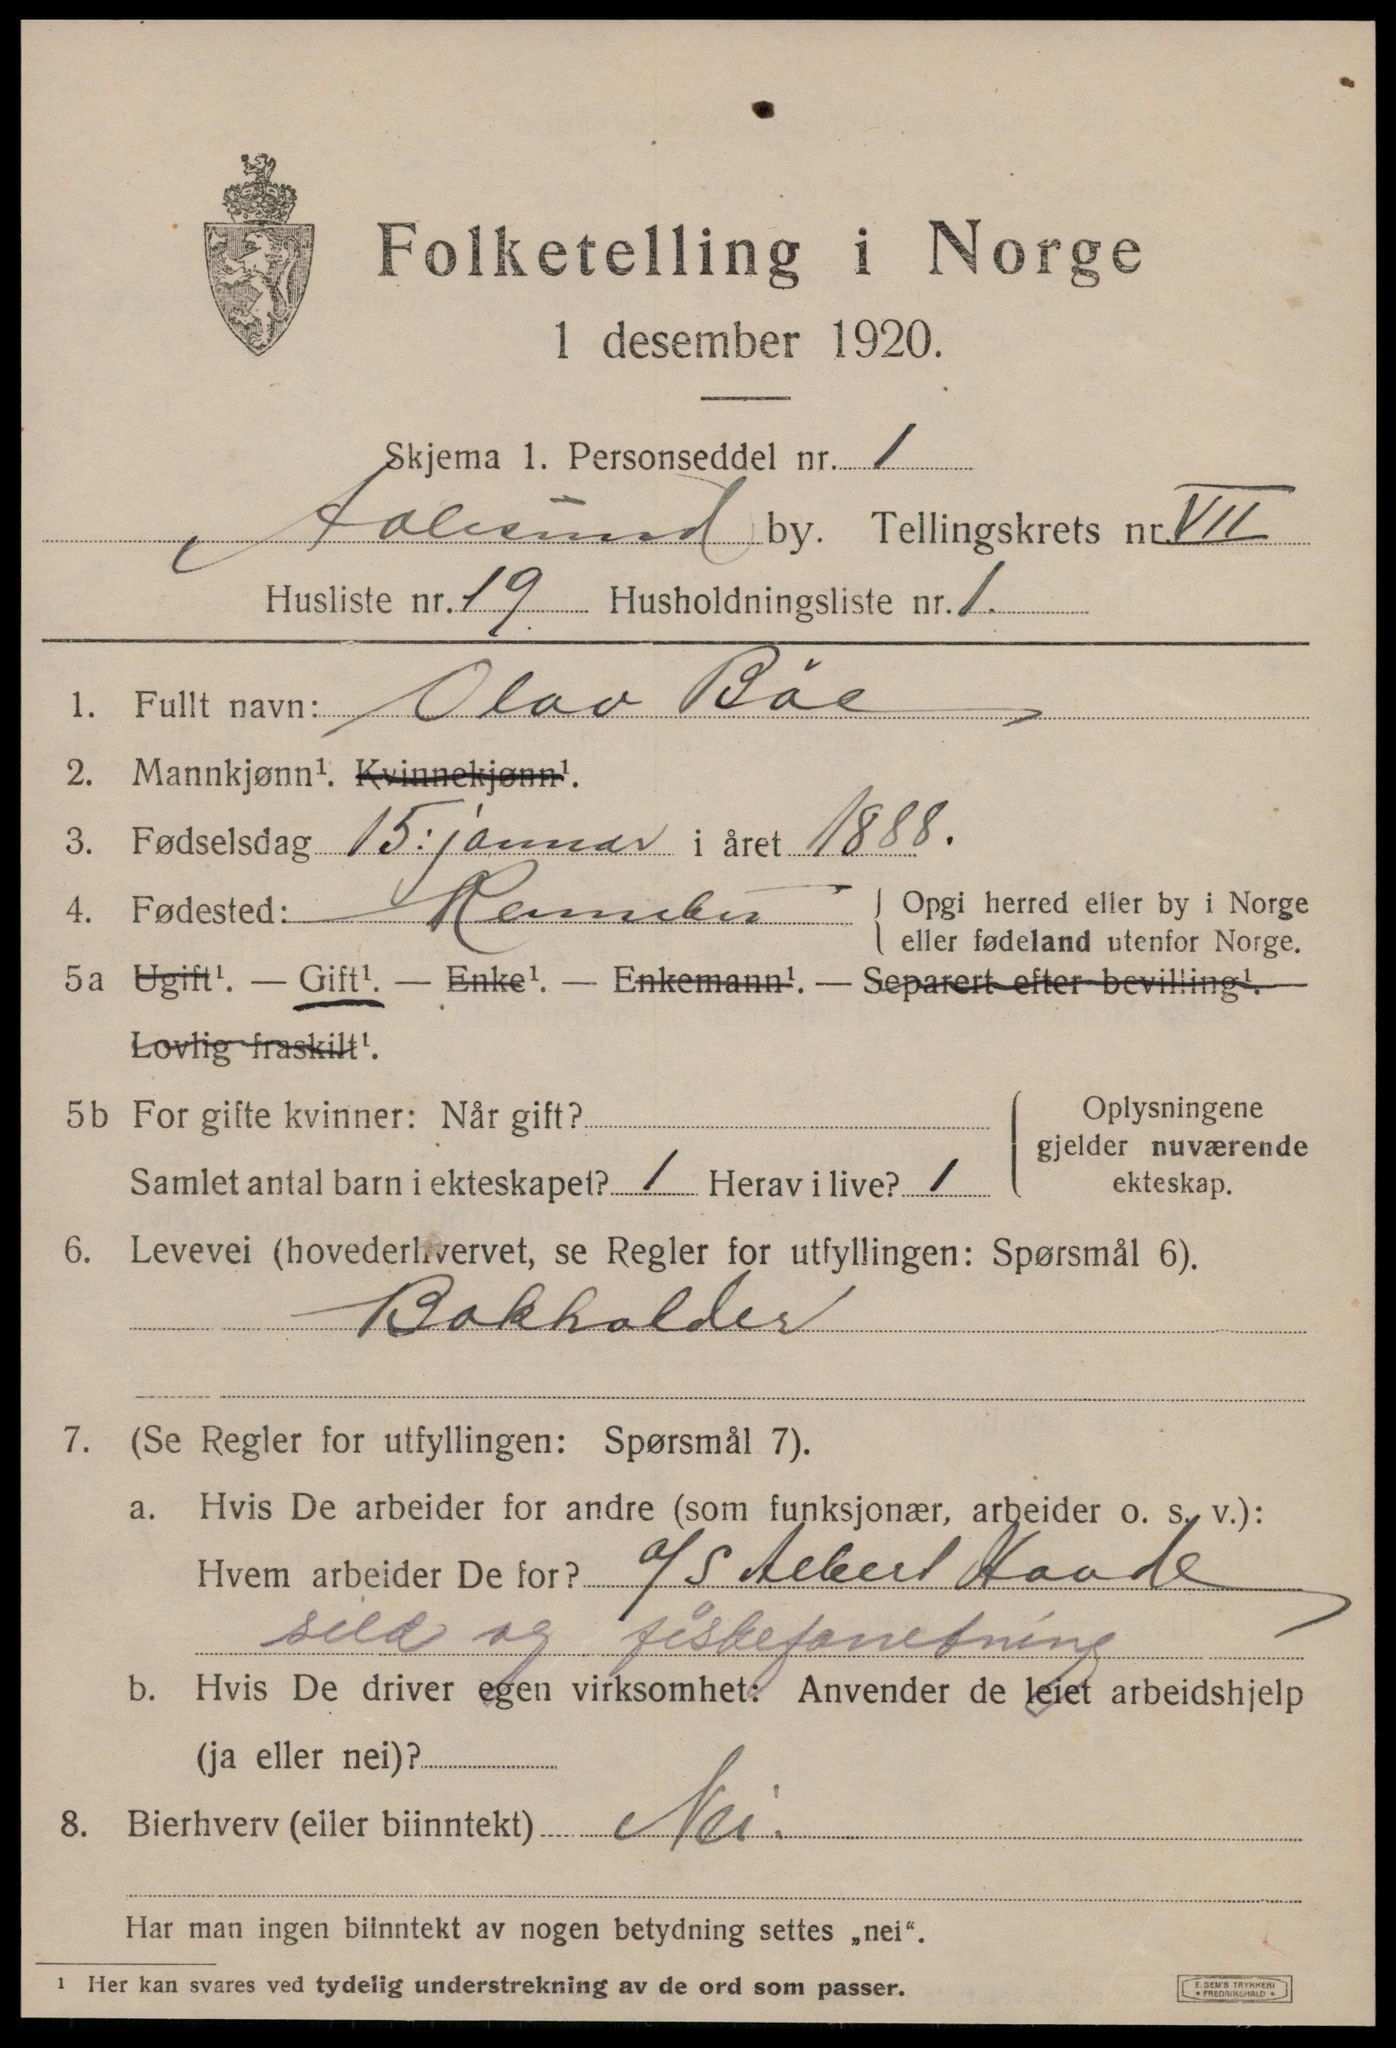 Folketelling i Norge
1 desember 1920.
Skjema 1. Personseddel nr. 1
Aalesund by. Tellingskrets nr. VII
Husliste nr. 19 Husholdningsliste nr. 1.
1. Fullt navn: Olav Böe
2. Mannkjønn¹. Kvinnekjønn¹.
3. Fødselsdag 15. januar i året 1888.
4. Fødested: { Opgi herred eller by i Norge
eller fødeland utenfor Norge.
5a Ugift¹. — Gift¹. — Enke¹. — Enkemann¹. — Separert efter bevilling¹.
Lovlig fraskilt¹.
5b For gifte kvinner: Når gift? { Oplysningene
gjelder nuværende
Samlet antal barn i ekteskapet? 1 Herav i live? 1 ekteskap.
6. Levevei (hovederhvervet, se Regler for utfyllingen: Spørsmål 6).
Bokholder
7. (Se Regler for utfyllingen: Spørsmål 7).
a. Hvis De arbeider for andre (som funksjonær, arbeider o. s. v.):
Hvem arbeider De for? a/s Albert
sild og
b. Hvis De driver egen virksomhet: Anvender de leiet arbeidshjelp
(ja eller nei)?
8. Bierhverv (eller biinntekt) Nei.
Har man ingen biinntekt av nogen betydning settes „nei“.
¹ Her kan svares ved tydelig understrekning av de ord som passer.
E. SEM'S TRYKKERI
• FREDRIKSHALD •